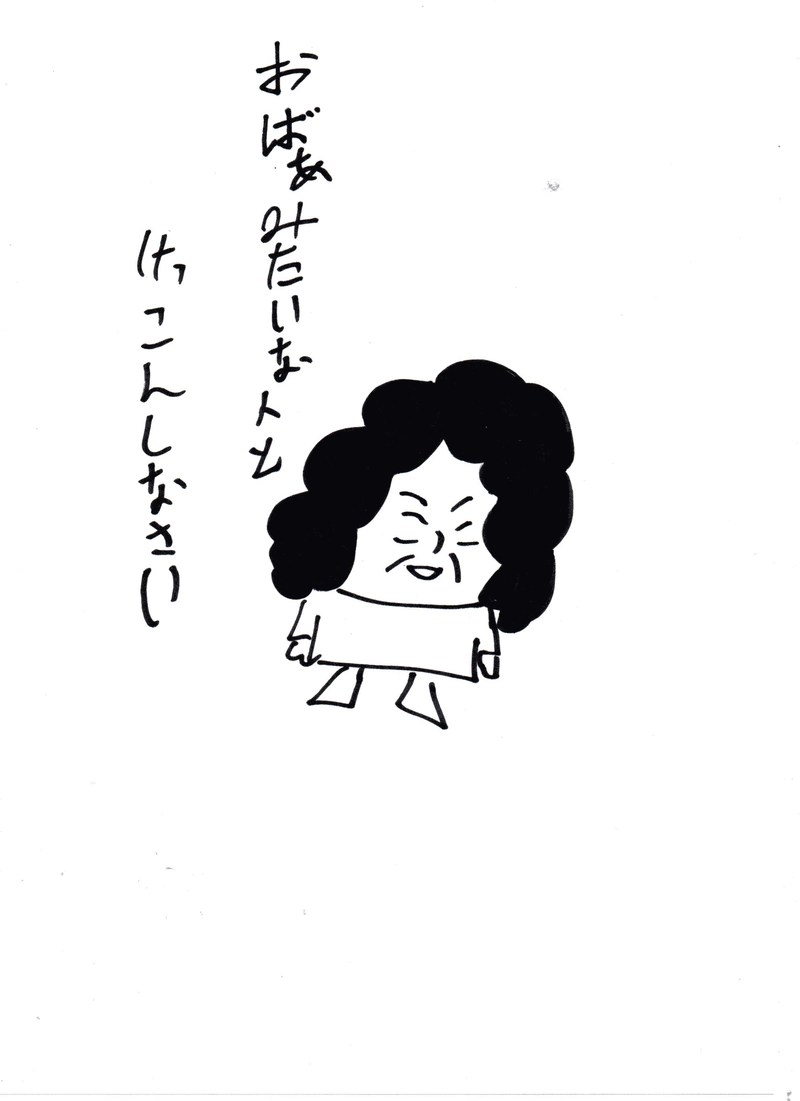 おばあみたいな人と
けっこんしなさい